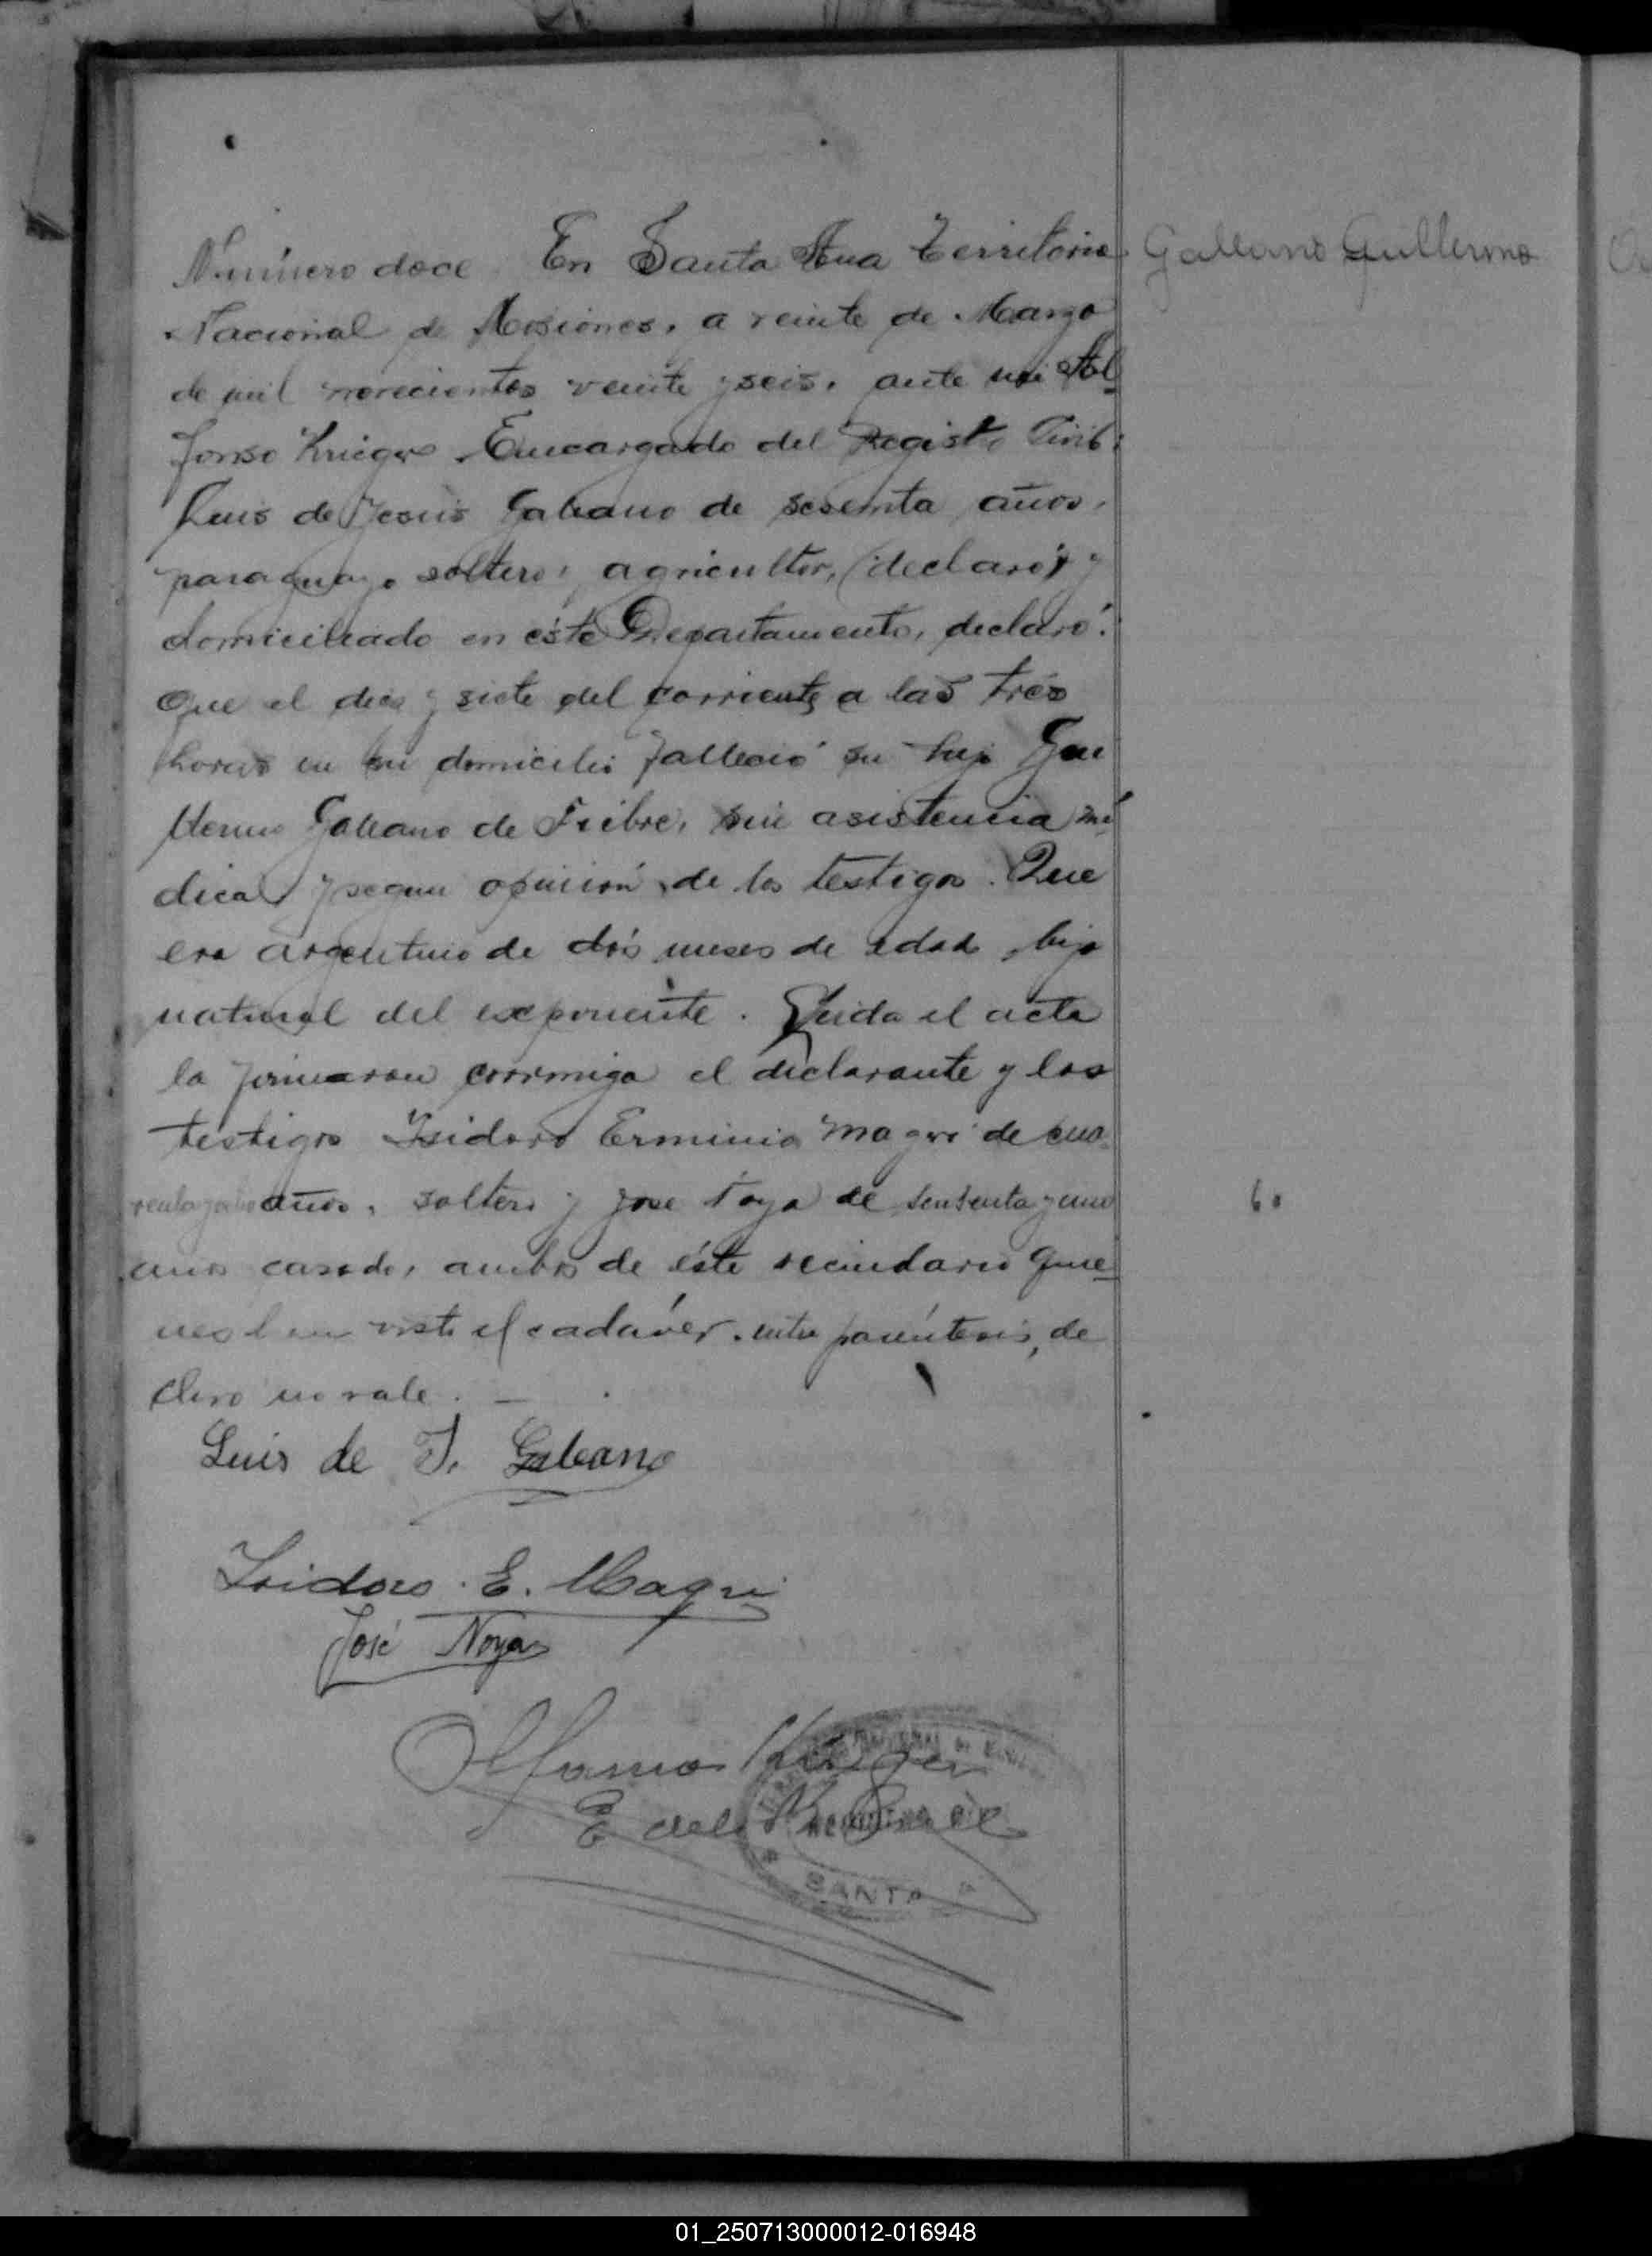 Número doce En Santa Ana Territorio
Nacional de Misiones, a veinte de Marzo
de mil novecientos veinte y seis, ante mi Al
fonso Krieger Encargado del Registro Civil:
Luis de Jesús Galeano de sesenta años,
paraguayo soltero, agricultor, (declaró) y
domiciliado en éste Departamento, declaró:
Que el diez y siete del corriente a las tres
horas en su domicilio falleció su hijo Gui
llermo Galeano de Fiebre, sin asistencia mé
dica y segun opinión de los testigos. Que
era argentino de dós meses de edad, hijo
natural del exponente. Leida el acta
la firmaron conmigo el declarante y los
testigos Isidoro Erminio Magri de cua
renta y años, soltero y José Noya de sensenta y uno
años casado, ambos de éste vecindario quie-
nes han visto el cadáver. entre paréntesis, de
claro no vale. —
Luis de J. Galeano
Isidoro. E. Magri
José Noya
Alfonso Krieger
E del R. Civil
SANTA
Galeano Guillermo
60
01_250713000012-016948